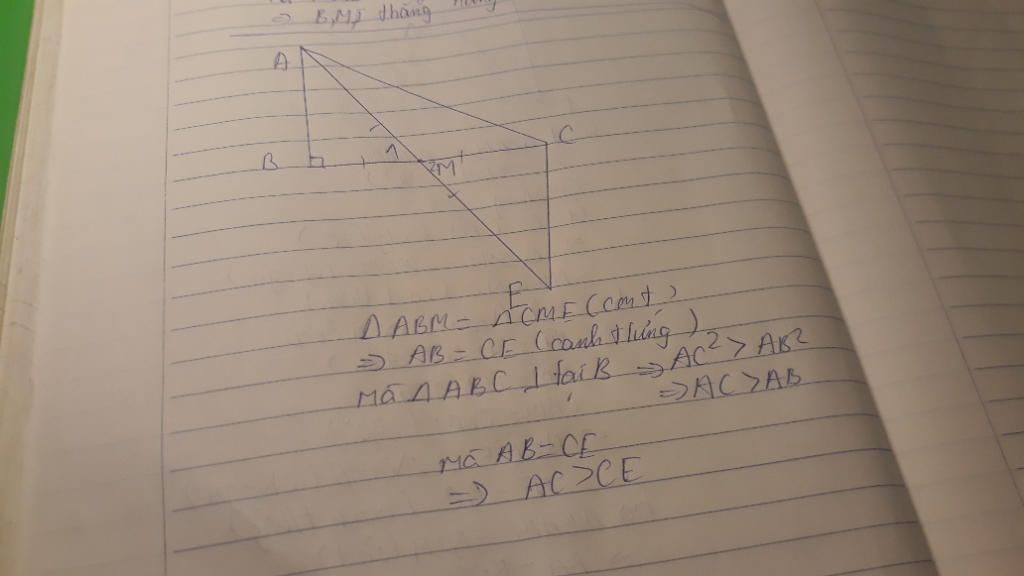 ⇒ B,M,I thẳng hàng
A
C
B
1
2
M
E
Δ ABM = ΔCME (cmt)
⇒ AB = CE (cạnh t/ứng)
Mà Δ ABC ⊥ tại B ⇒ AC² > AB²
⇒ AC > AB
Mà AB = CE
⇒ AC > CE